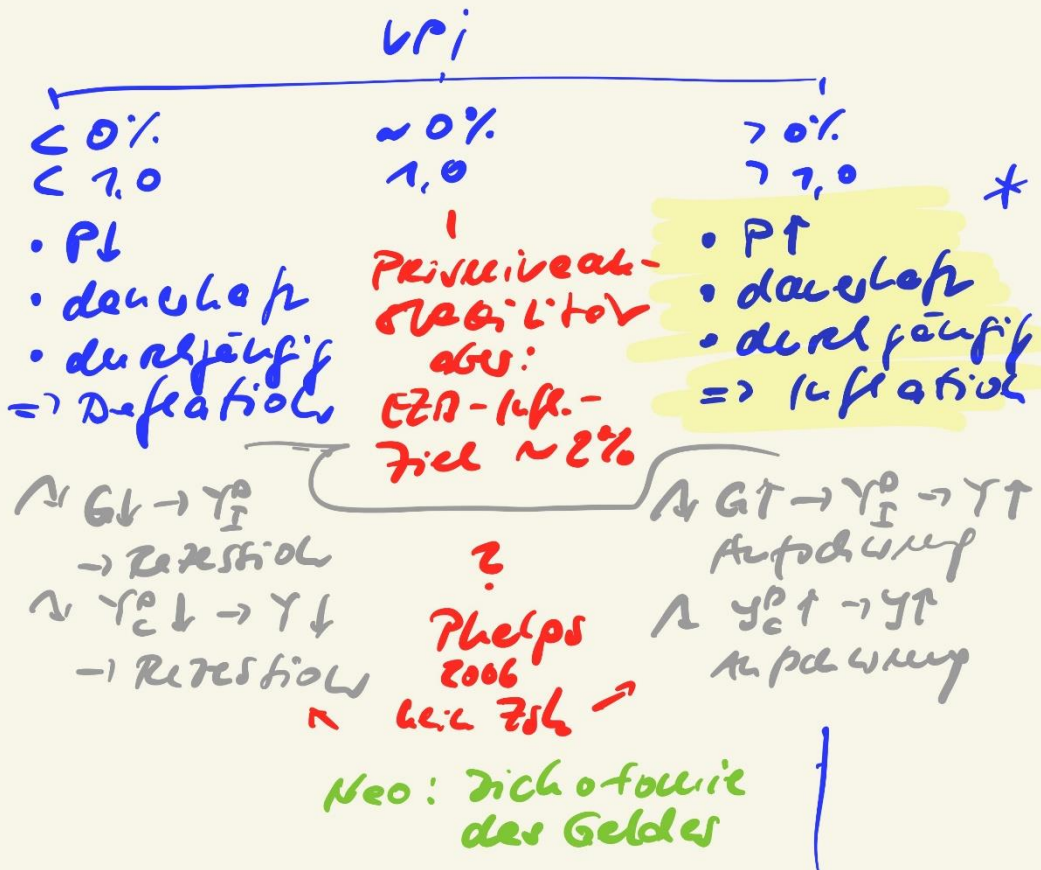 VPi
< 0%
< 1,0
• P↓
• dauerhaft
• durchgängig
=> Deflation
~ 0%
1,0
Preisniveau-
stabilität
aber:
EZB-Infl.-
Ziel ~ 2%
> 0%
> 1,0 *
• P↑
• dauerhaft
• durchgängig
=> Inflation
G↓ → Y_I^D
→ Rezession
Y_C^D ↓ → Y↓
→ Rezession
?
Phelps
2006
↖ kein Zsh ↗
G↑ → Y_I^D → Y↑
Aufschwung
Y_C^D ↑ → Y↑
Aufschwung
Neo: Dichotomie
des Geldes